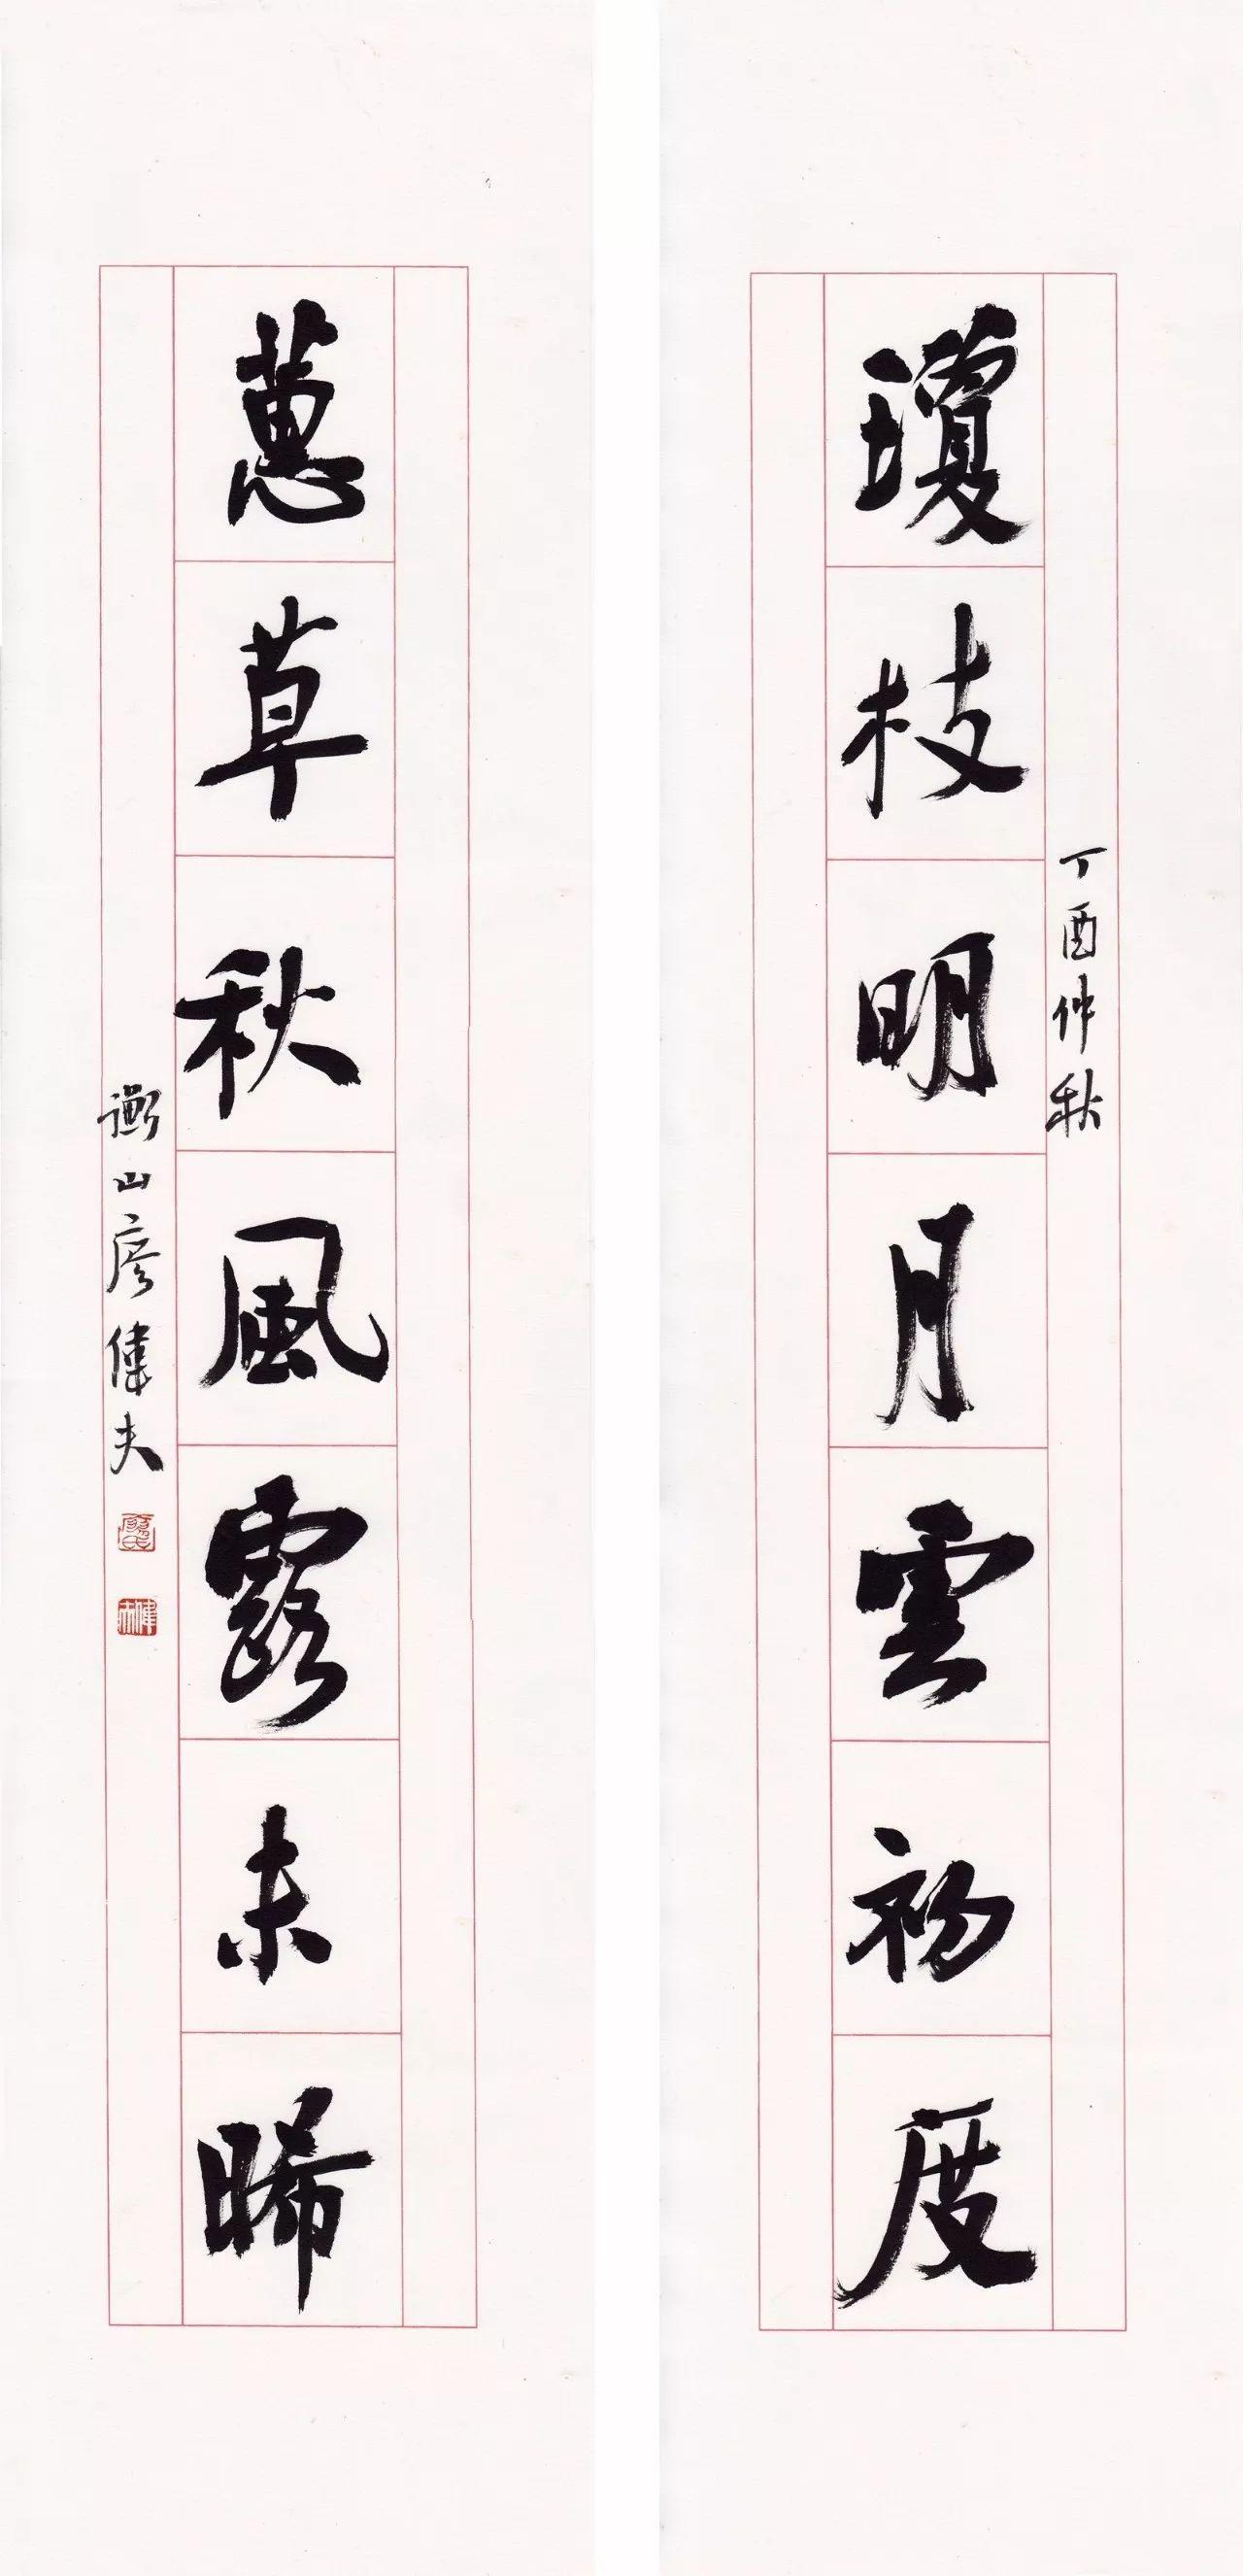 丁酉仲秋
瓊枝明月雲初度
蕙草秋風露未晞
衡山廖偉夫